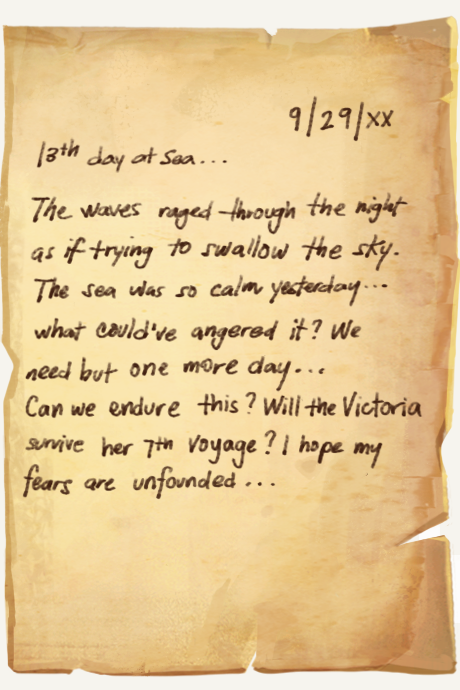 9/29/xx
13th day at sea...
The waves raged through the night
as if trying to swallow the sky.
The sea was so calm yesterday...
what could've angered it? We
need but one more day...
Can we endure this? Will the Victoria
survive her 7th voyage? I hope my
fears are unfounded...